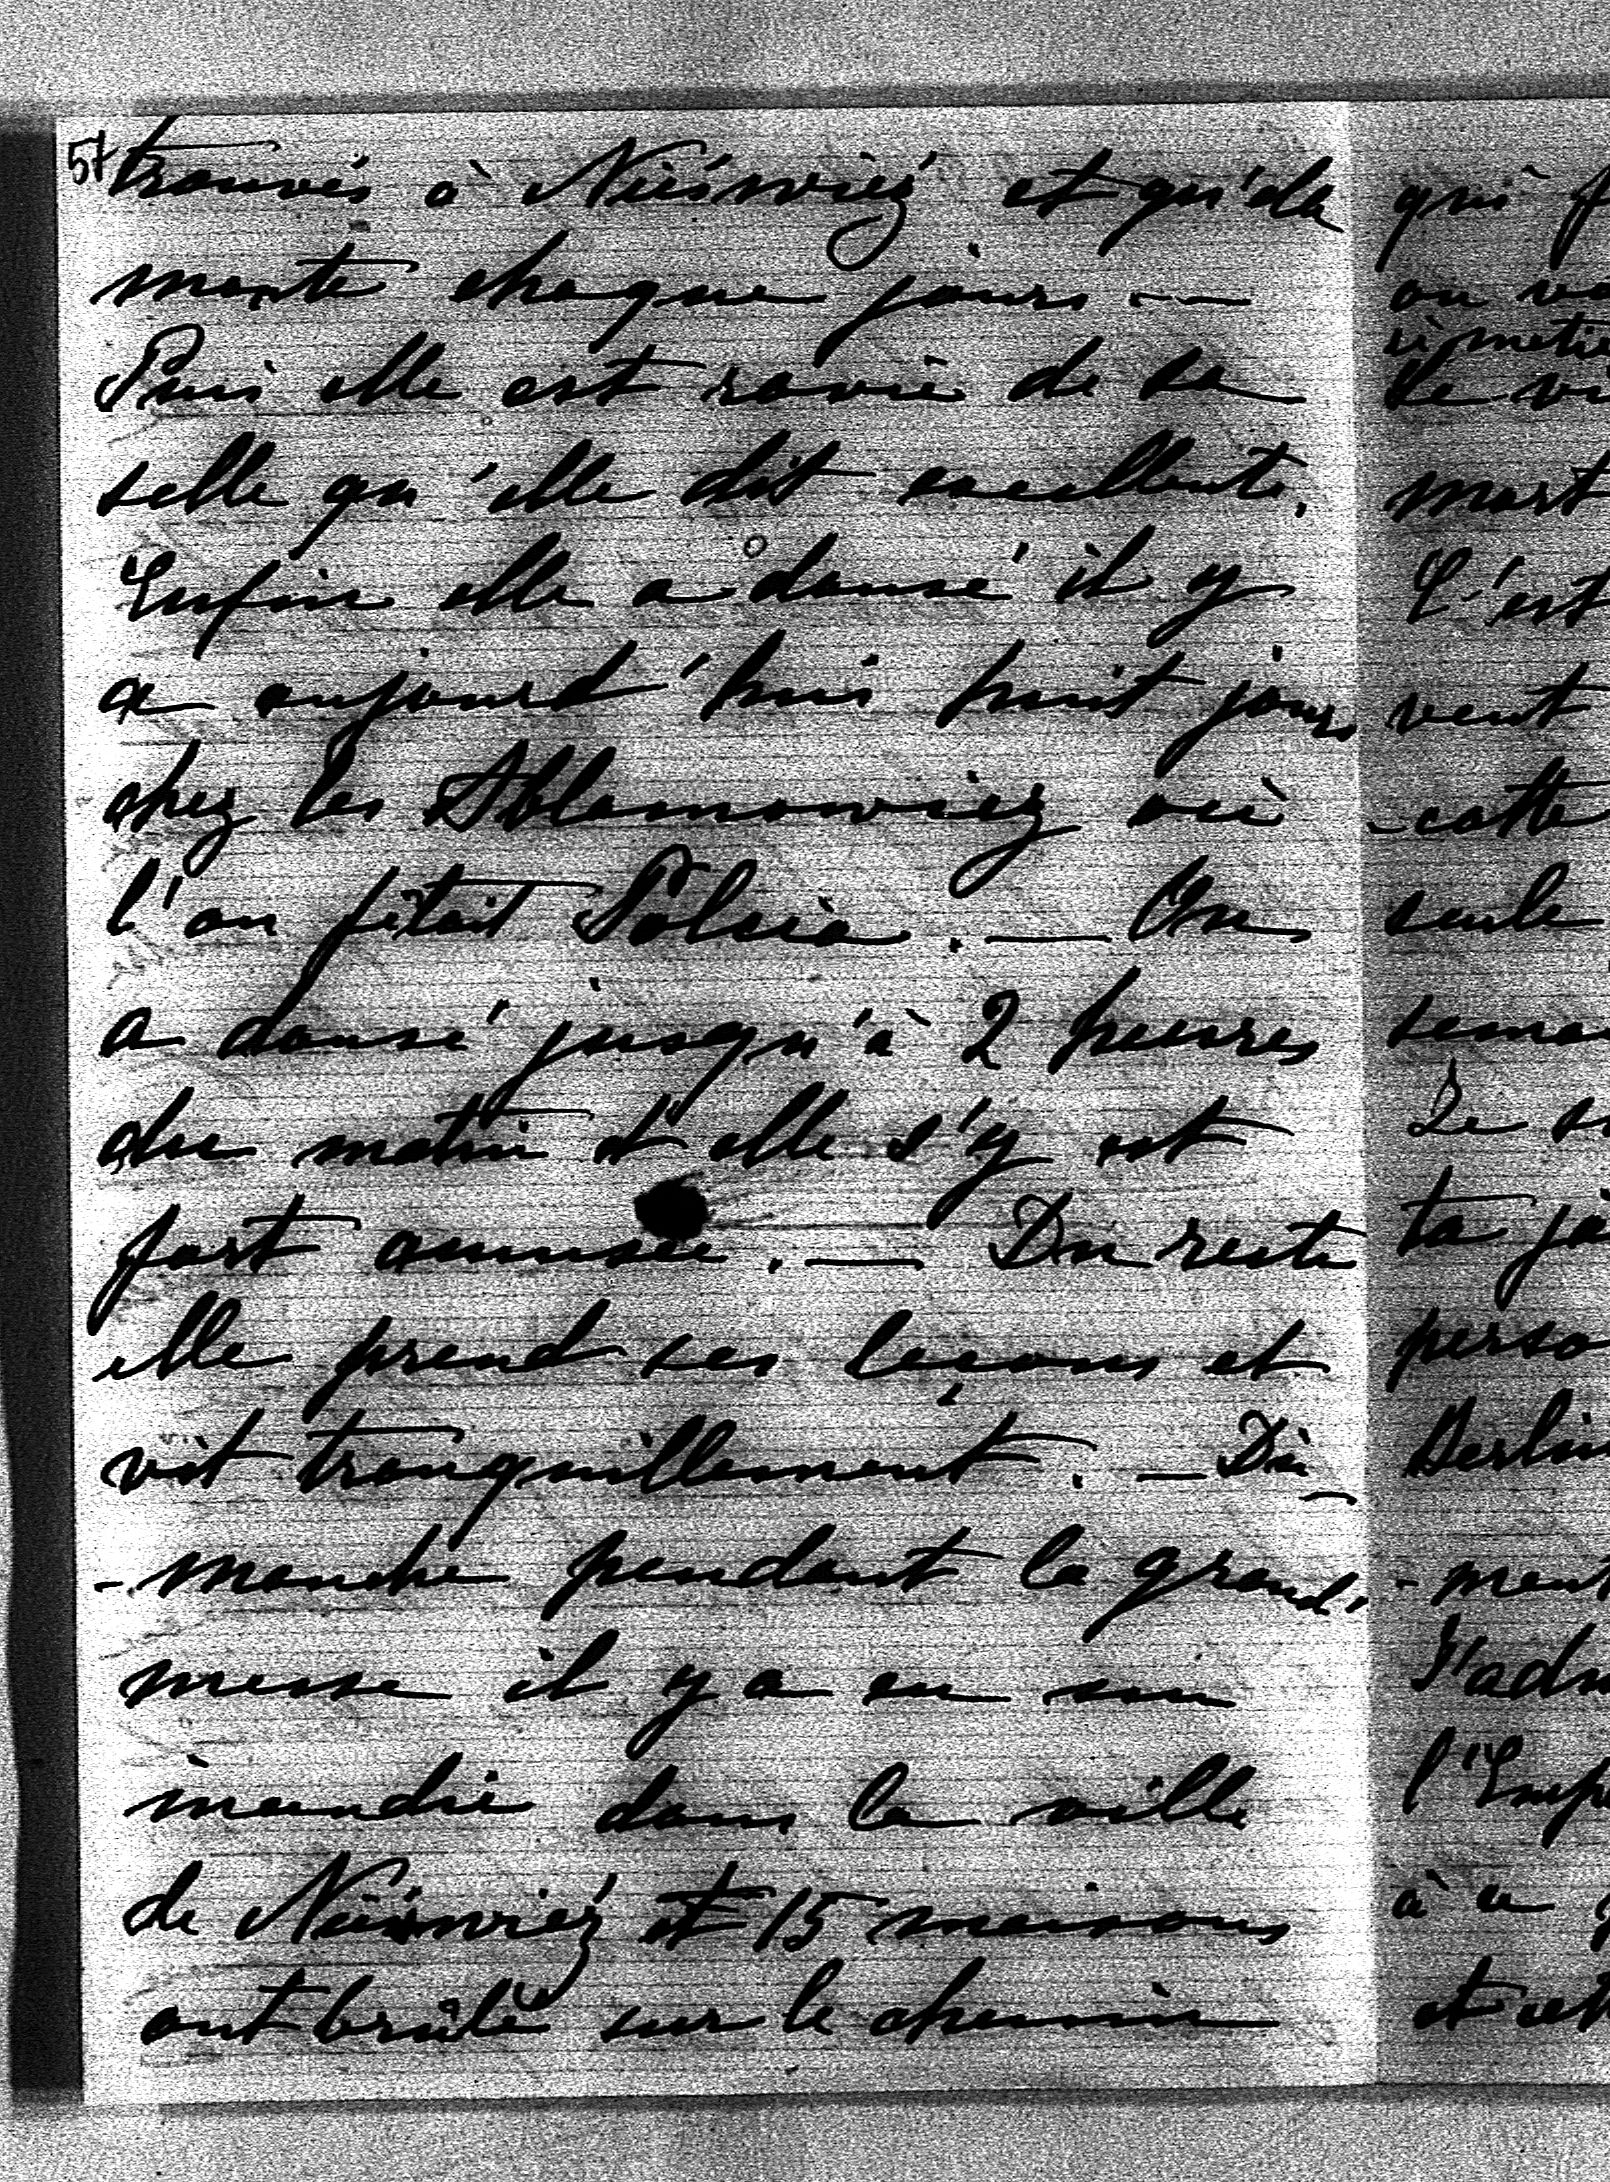 57
trouvés à Nieświéź et qu'elle
monte chaque jours - —
Puis elle est ravie de sa
selle qu'elle dit excellente.
Enfin elle a dansé il y
a aujourd'hui huit jours
chez les Ablamowicz où
l'on fêtait Polcia. — On
a dansé jusqu'à 2 heures
du matin et elle s'y est
fort amusée. — Du reste
elle prend ses leçons et
vit tranquillement. — Di-
-manche pendant la grand'
messe il y a eu un
incendie dans la ville
de Nieświéź et 15 maisons
ont brûlé sur le chemin
qui
on
le
mort
C'est
vent
-cette
seule
Le
ta
-ment
à
et